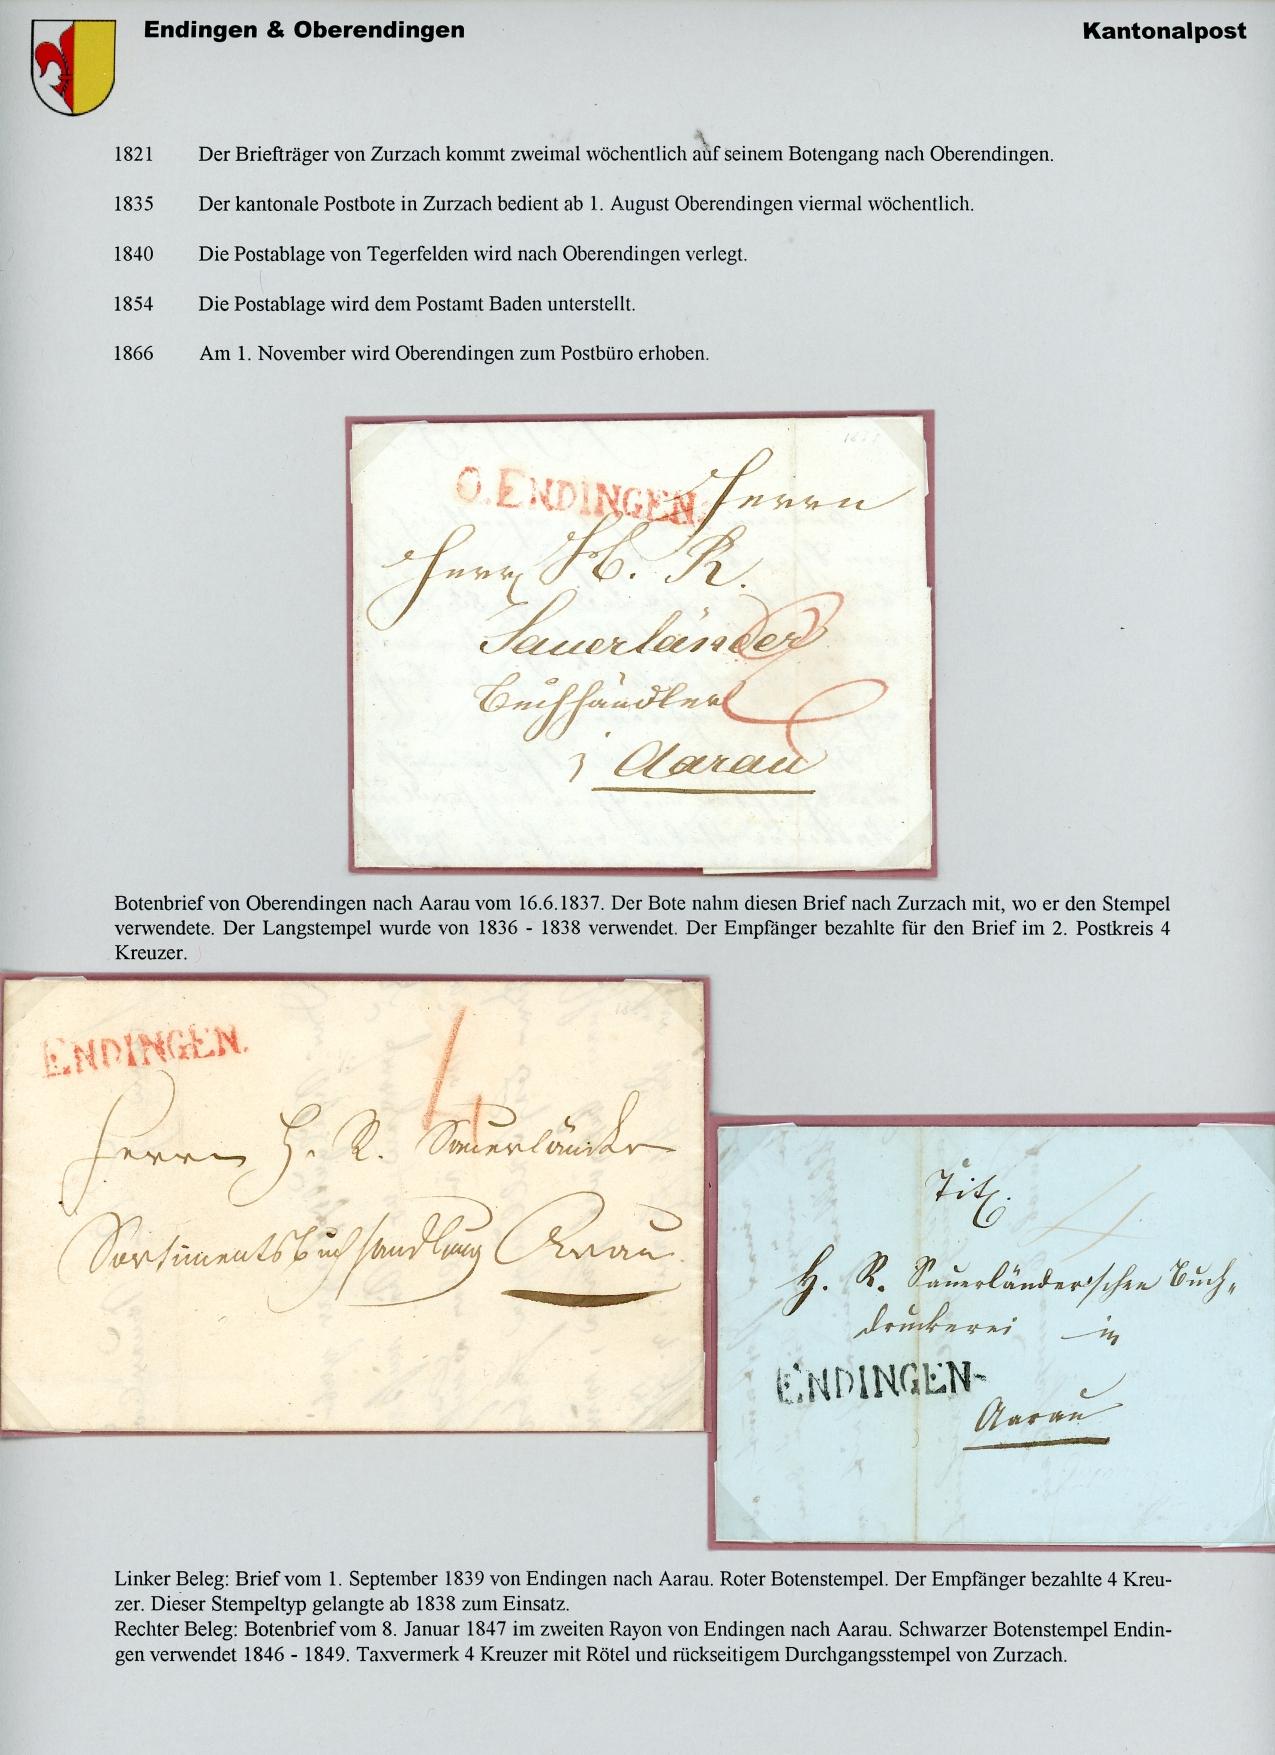 Endingen & Oberendingen
Kantonalpost
1821 Der Briefträger von Zurzach kommt zweimal wöchentlich auf seinem Botengang nach Oberendingen.
1835 Der kantonale Postbote in Zurzach bedient ab 1. August Oberendingen viermal wöchentlich.
1840 Die Postablage von Tegerfelden wird nach Oberendingen verlegt.
1854 Die Postablage wird dem Postamt Baden unterstellt.
1866 Am 1. November wird Oberendingen zum Postbüro erhoben.
O. ENDINGEN.
Herrn
Herrn H. R.
Sauerländer
Buchhändler
Aarau
Botenbrief von Oberendingen nach Aarau vom 16.6.1837. Der Bote nahm diesen Brief nach Zurzach mit, wo er den Stempel
verwendete. Der Langstempel wurde von 1836 - 1838 verwendet. Der Empfänger bezahlte für den Brief im 2. Postkreis 4
Kreuzer.
ENDINGEN.
4
Herrn H. R. Sauerländer
Sortimentsbuchhandlung Aarau.
Tit.
4
H. R. Sauerländer'schen Buch-
druckerei in
ENDINGEN-
Aarau
Linker Beleg: Brief vom 1. September 1839 von Endingen nach Aarau. Roter Botenstempel. Der Empfänger bezahlte 4 Kreu-
zer. Dieser Stempeltyp gelangte ab 1838 zum Einsatz.
Rechter Beleg: Botenbrief vom 8. Januar 1847 im zweiten Rayon von Endingen nach Aarau. Schwarzer Botenstempel Endin-
gen verwendet 1846 - 1849. Taxvermerk 4 Kreuzer mit Rötel und rückseitigem Durchgangsstempel von Zurzach.